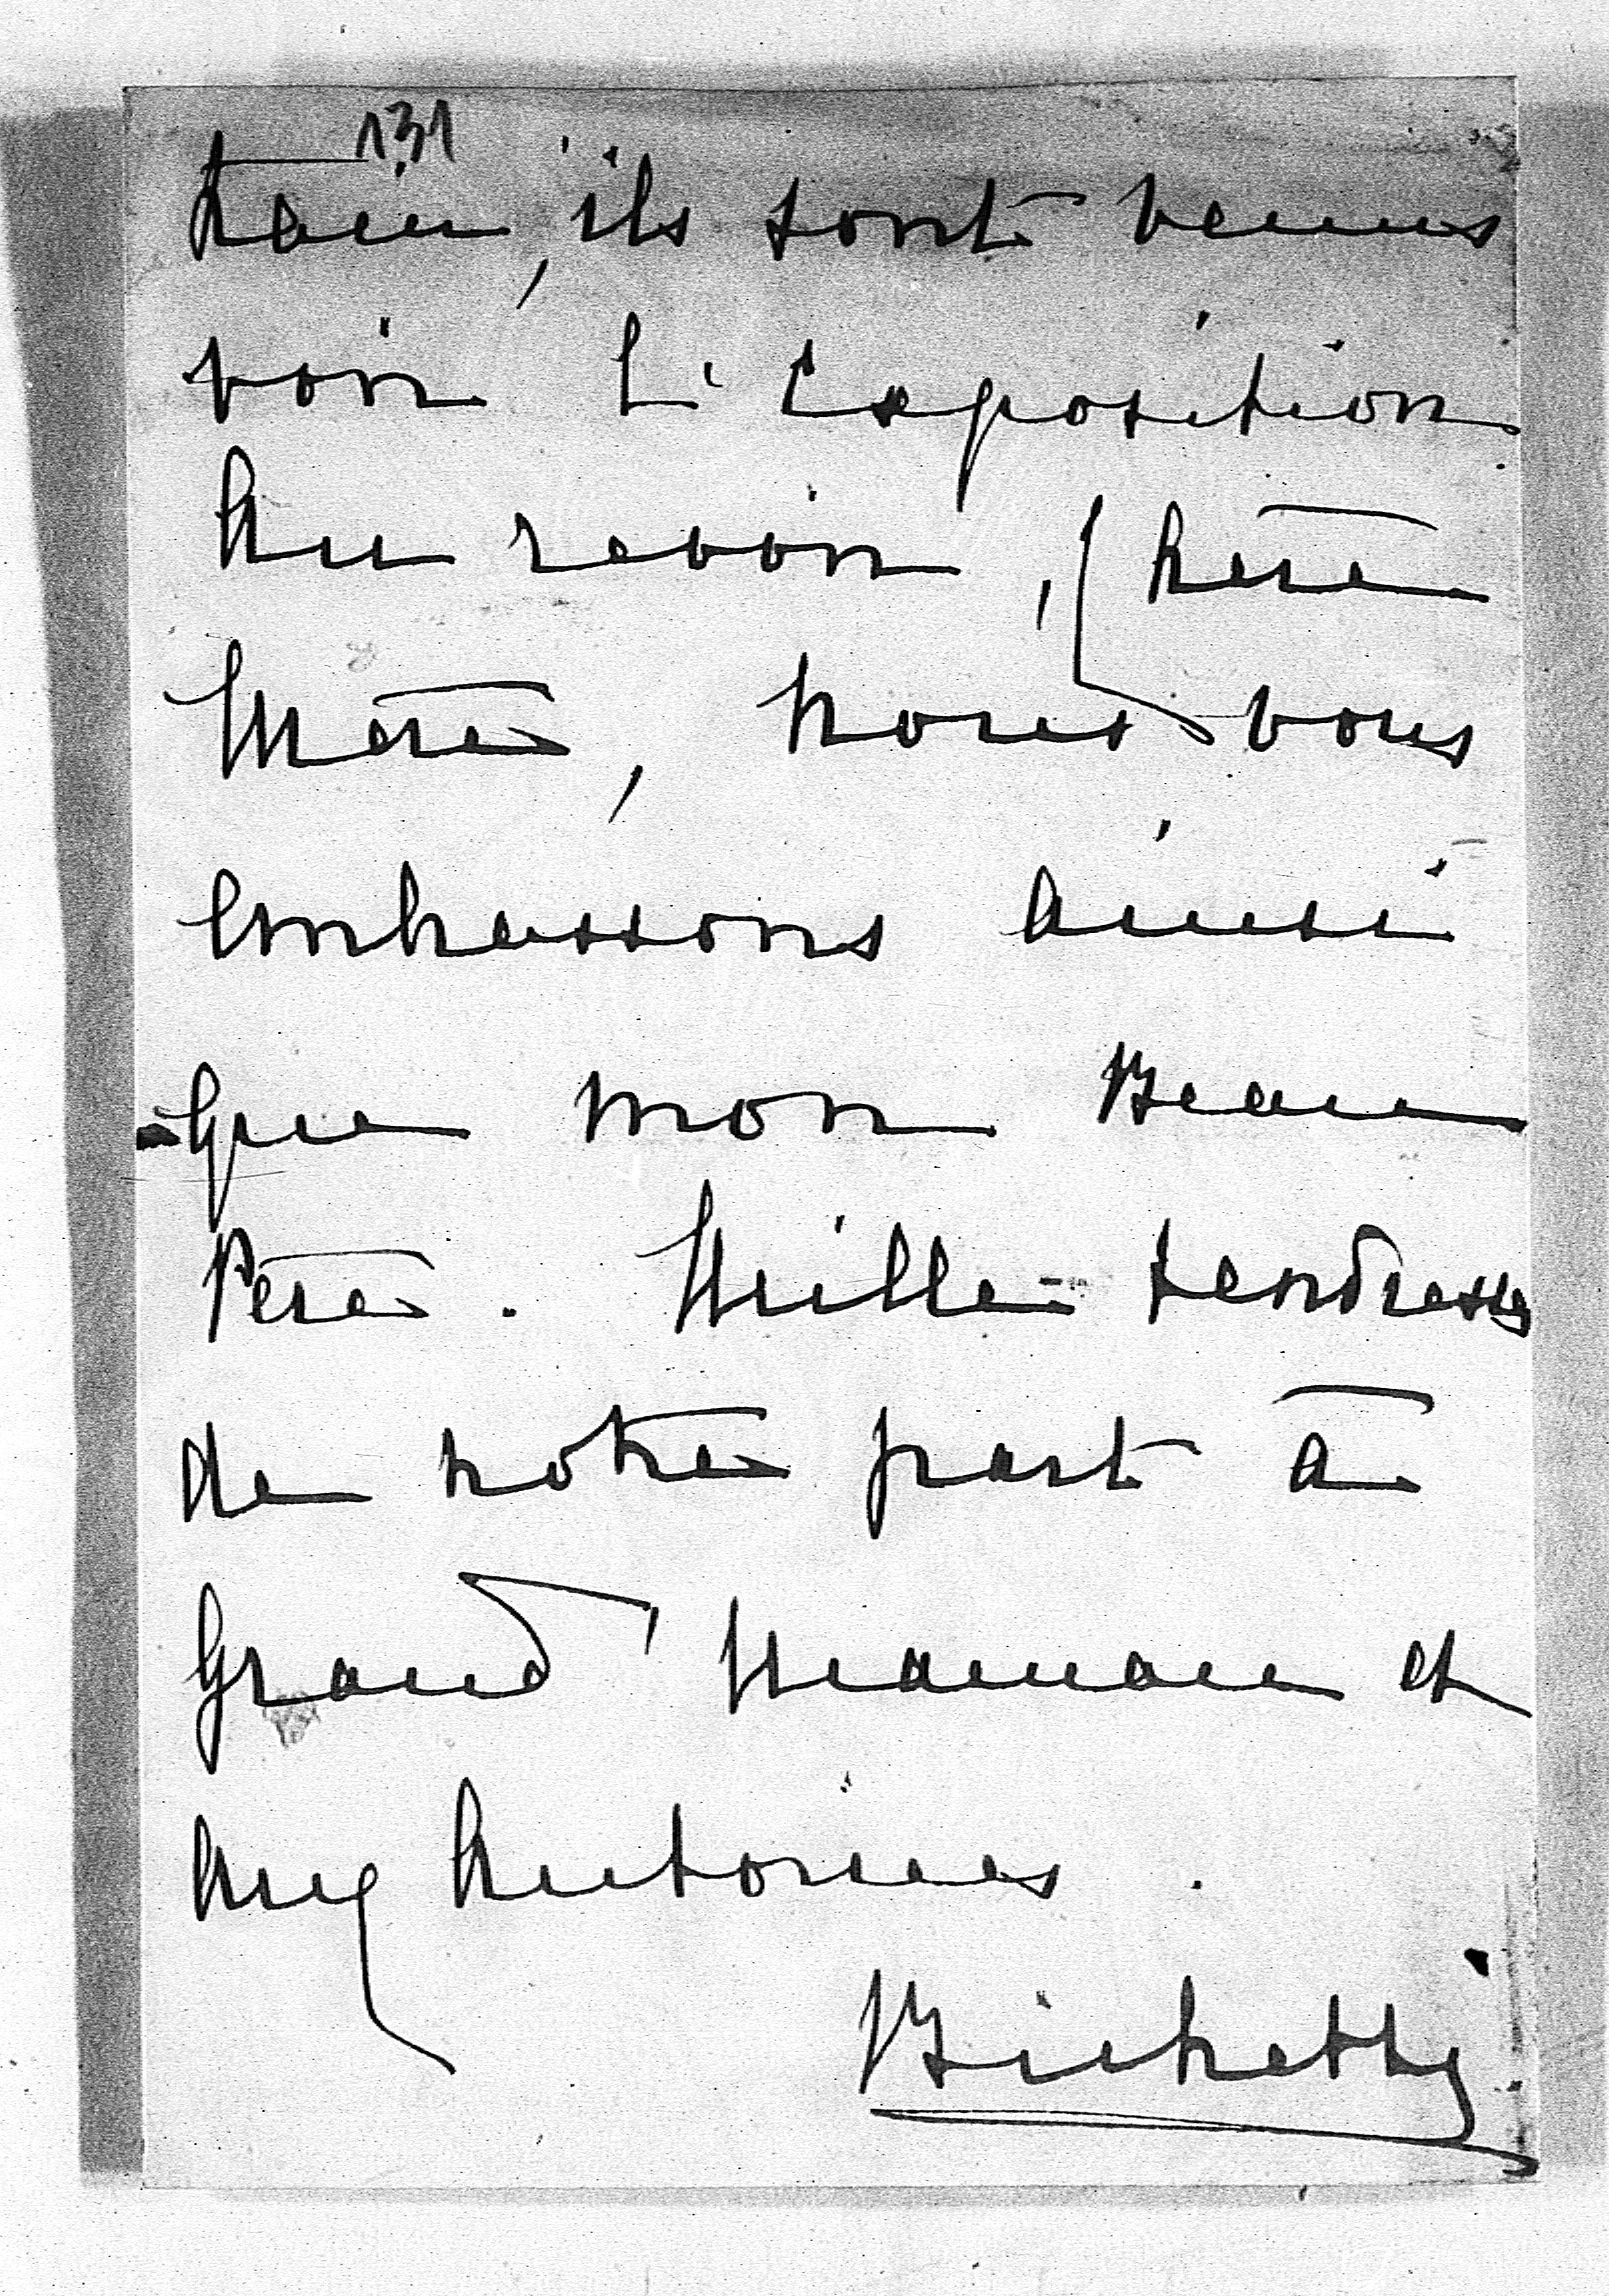 131
train, ils sont venus
voir L'Exposition.
Au revoir, chère
Mère, nous vous
embrassons ainsi
que mon Beau
Père. Mille tendresses
de notre part à
Grand' Maman et
aux Antoines.
Bichette.